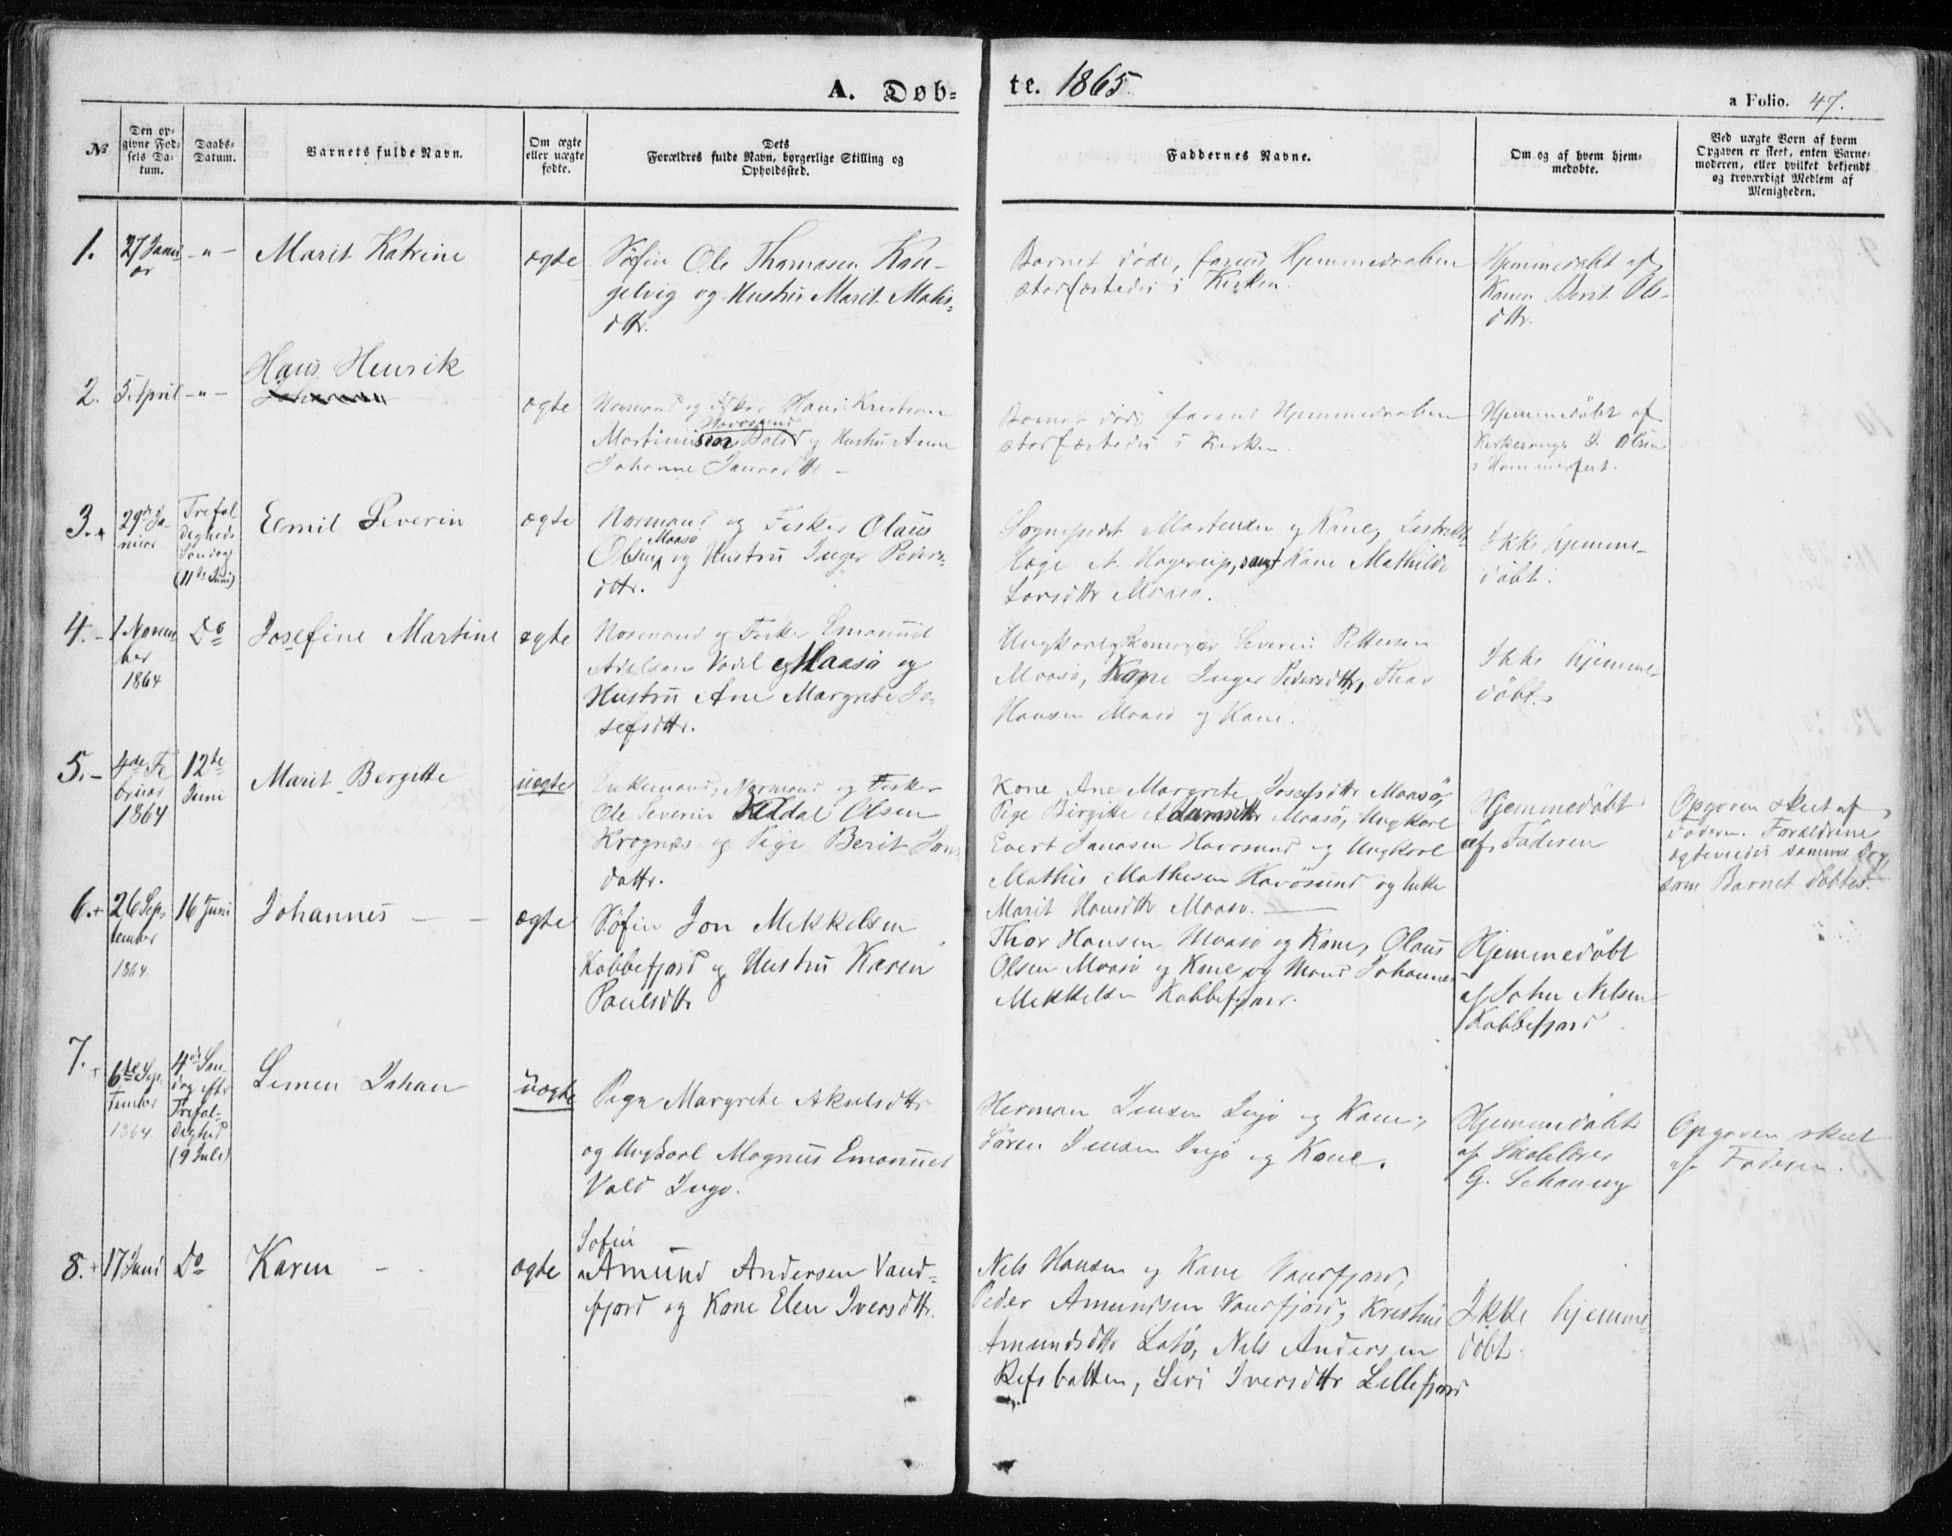 A. Døb-
te. 1865.
a Folio. 47.
№
Den op-
givne Fød-
sels Da-
tum.
Daabs-
Datum.
Barnets fulde Navn.
Om ægte
eller uægte
fødte.
Dets
Forældres fulde Navn, borgerlige Stilling og
Opholdssted.
Faddernes Navne.
Om og af hvem hjem-
medøbte.
Ved uægte Børn af hvem
Opgaven er skeet, enten Barne-
moderen, eller hvilket bekjendt
og troværdigt Medlem af
Menigheden.
1.
27 Janu-
ar
- " -
Marit Katrine
ægte
Søfin Ole Thomasen
gelvig og Hustru Marit
dttr.
Barnet døde, førend Hjemmedaaben
stadfæstedes i Kirken.
Hjemmedøbt af
Konen Berit Ols-
dttr.
2.
5 April
- " -
Hans Henrik
ægte
Normand og Fisker Hans Kristian
Havøsund
og Hustru Anne
Johanne
Barnet døde førend Hjemmedaaben
stadfæstedes i Kirken.
Hjemmedøbt af
Kirkesanger J. Olsen
i Hammerfest.
3.+
29de Ja-
nuar
Trefol
digheds
Søndag
(11te Juni)
Emil Severin
ægte
Normand og Fisker Olaus
Maasø
Olsen og Hustru Inger Peders-
dttr.
Sognepræst Mortensen og Kone, Distrikts
læge A. Hagerup, samt Kone Mathilde
Larsdttr Maasø.
Ikke hjemme-
døbt.
4.-
1 Novem-
ber
1864
Do
Josefine Martine
ægte
Normand og Fisker Emanuel
Maasø og
Hustru Ane Margrete Jo-
sefsdttr.
Ungkarl Severin Pettersen
Maasø, Kone Inger Pedersdttr, Thor
Hansen Maasø og Kone.
Ikke hjemme-
døbt.
5.-
4de Fe
bruar
1864
12te
Juni
Marit Bergitte
uægte
Enkemand, Normand og Fisker
Ole Severin Olsen
Krognæs og Pige Berit Jans
dattr.
Kone Ane Margrete Josefsdttr Maasø,
Pige Birgitte Adamsdttr Maasø, Ungkarl
Evert Havøsund og Ungkarl
Mathis Mathisen Havøsund og Enke
Marit Hansdttr Maasø.
Hjemmedøbt
af Faderen
Opgaven skeet af
Faderen. Forældrene
ægteviedes samme Dag,
som Barnet døbtes.
6.+
26 Sep-
tember
1864.
16 Juni
Johannes - -
ægte
Søfin Jon Mikkelsen
Kobbefjord og Hustru Karen
Poulsdttr
Thor Hansen Maasø og Kone, Olaus
Olsen Maasø og Kone og Mand Johannes
Mikkelsen Kobbefjord.
Hjemmedøbt
af John Nilsen
Kobbefjord
7.+
6te Sep-
tember
1864.
4de Søn-
dag efter
Trefol-
dighed
(9 Juli)
Simen Johan
uægte
Pige Margrete Akselsdttr
og Ungkarl Magnus Emanuel
Vold Ingø.
Herman Jensen Ingø og Kone,
Søren Jensen Ingø og Kone.
Hjemmedøbt
af Skolelærer
G. Schanng
Opgaven skeet
af Faderen.
8.+
17 Juni
Do
Karen - -
ægte
Søfin
Amund Andersen Vand-
fjord og Kone Elen Iversdttr.
Nils Hansen og Kone Vandfjord,
Peder Amundsen Vandfjord, Kristine
Amundsdttr Latø, Nils Andersen
Refsbotten, Siri Iversdttr Lillefjord
Ikke hjemme-
døbt.